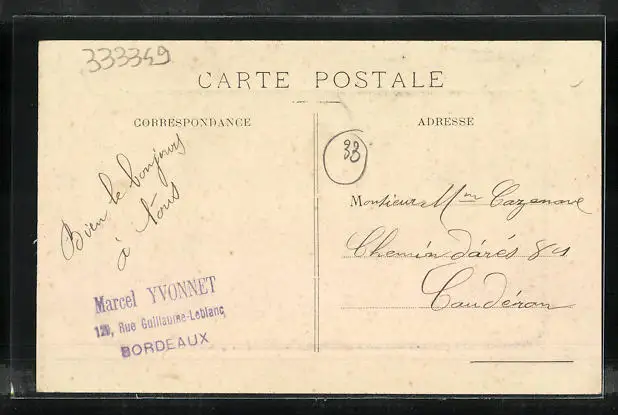 333349
CARTE POSTALE
CORRESPONDANCE
ADRESSE
33
Bien le bonjours
à tous
Monsieur Mme Cazenave
Chemin d'arés 84
Caudéran
Marcel YVONNET
120, Rue Guillaume-Leblanc,
BORDEAUX